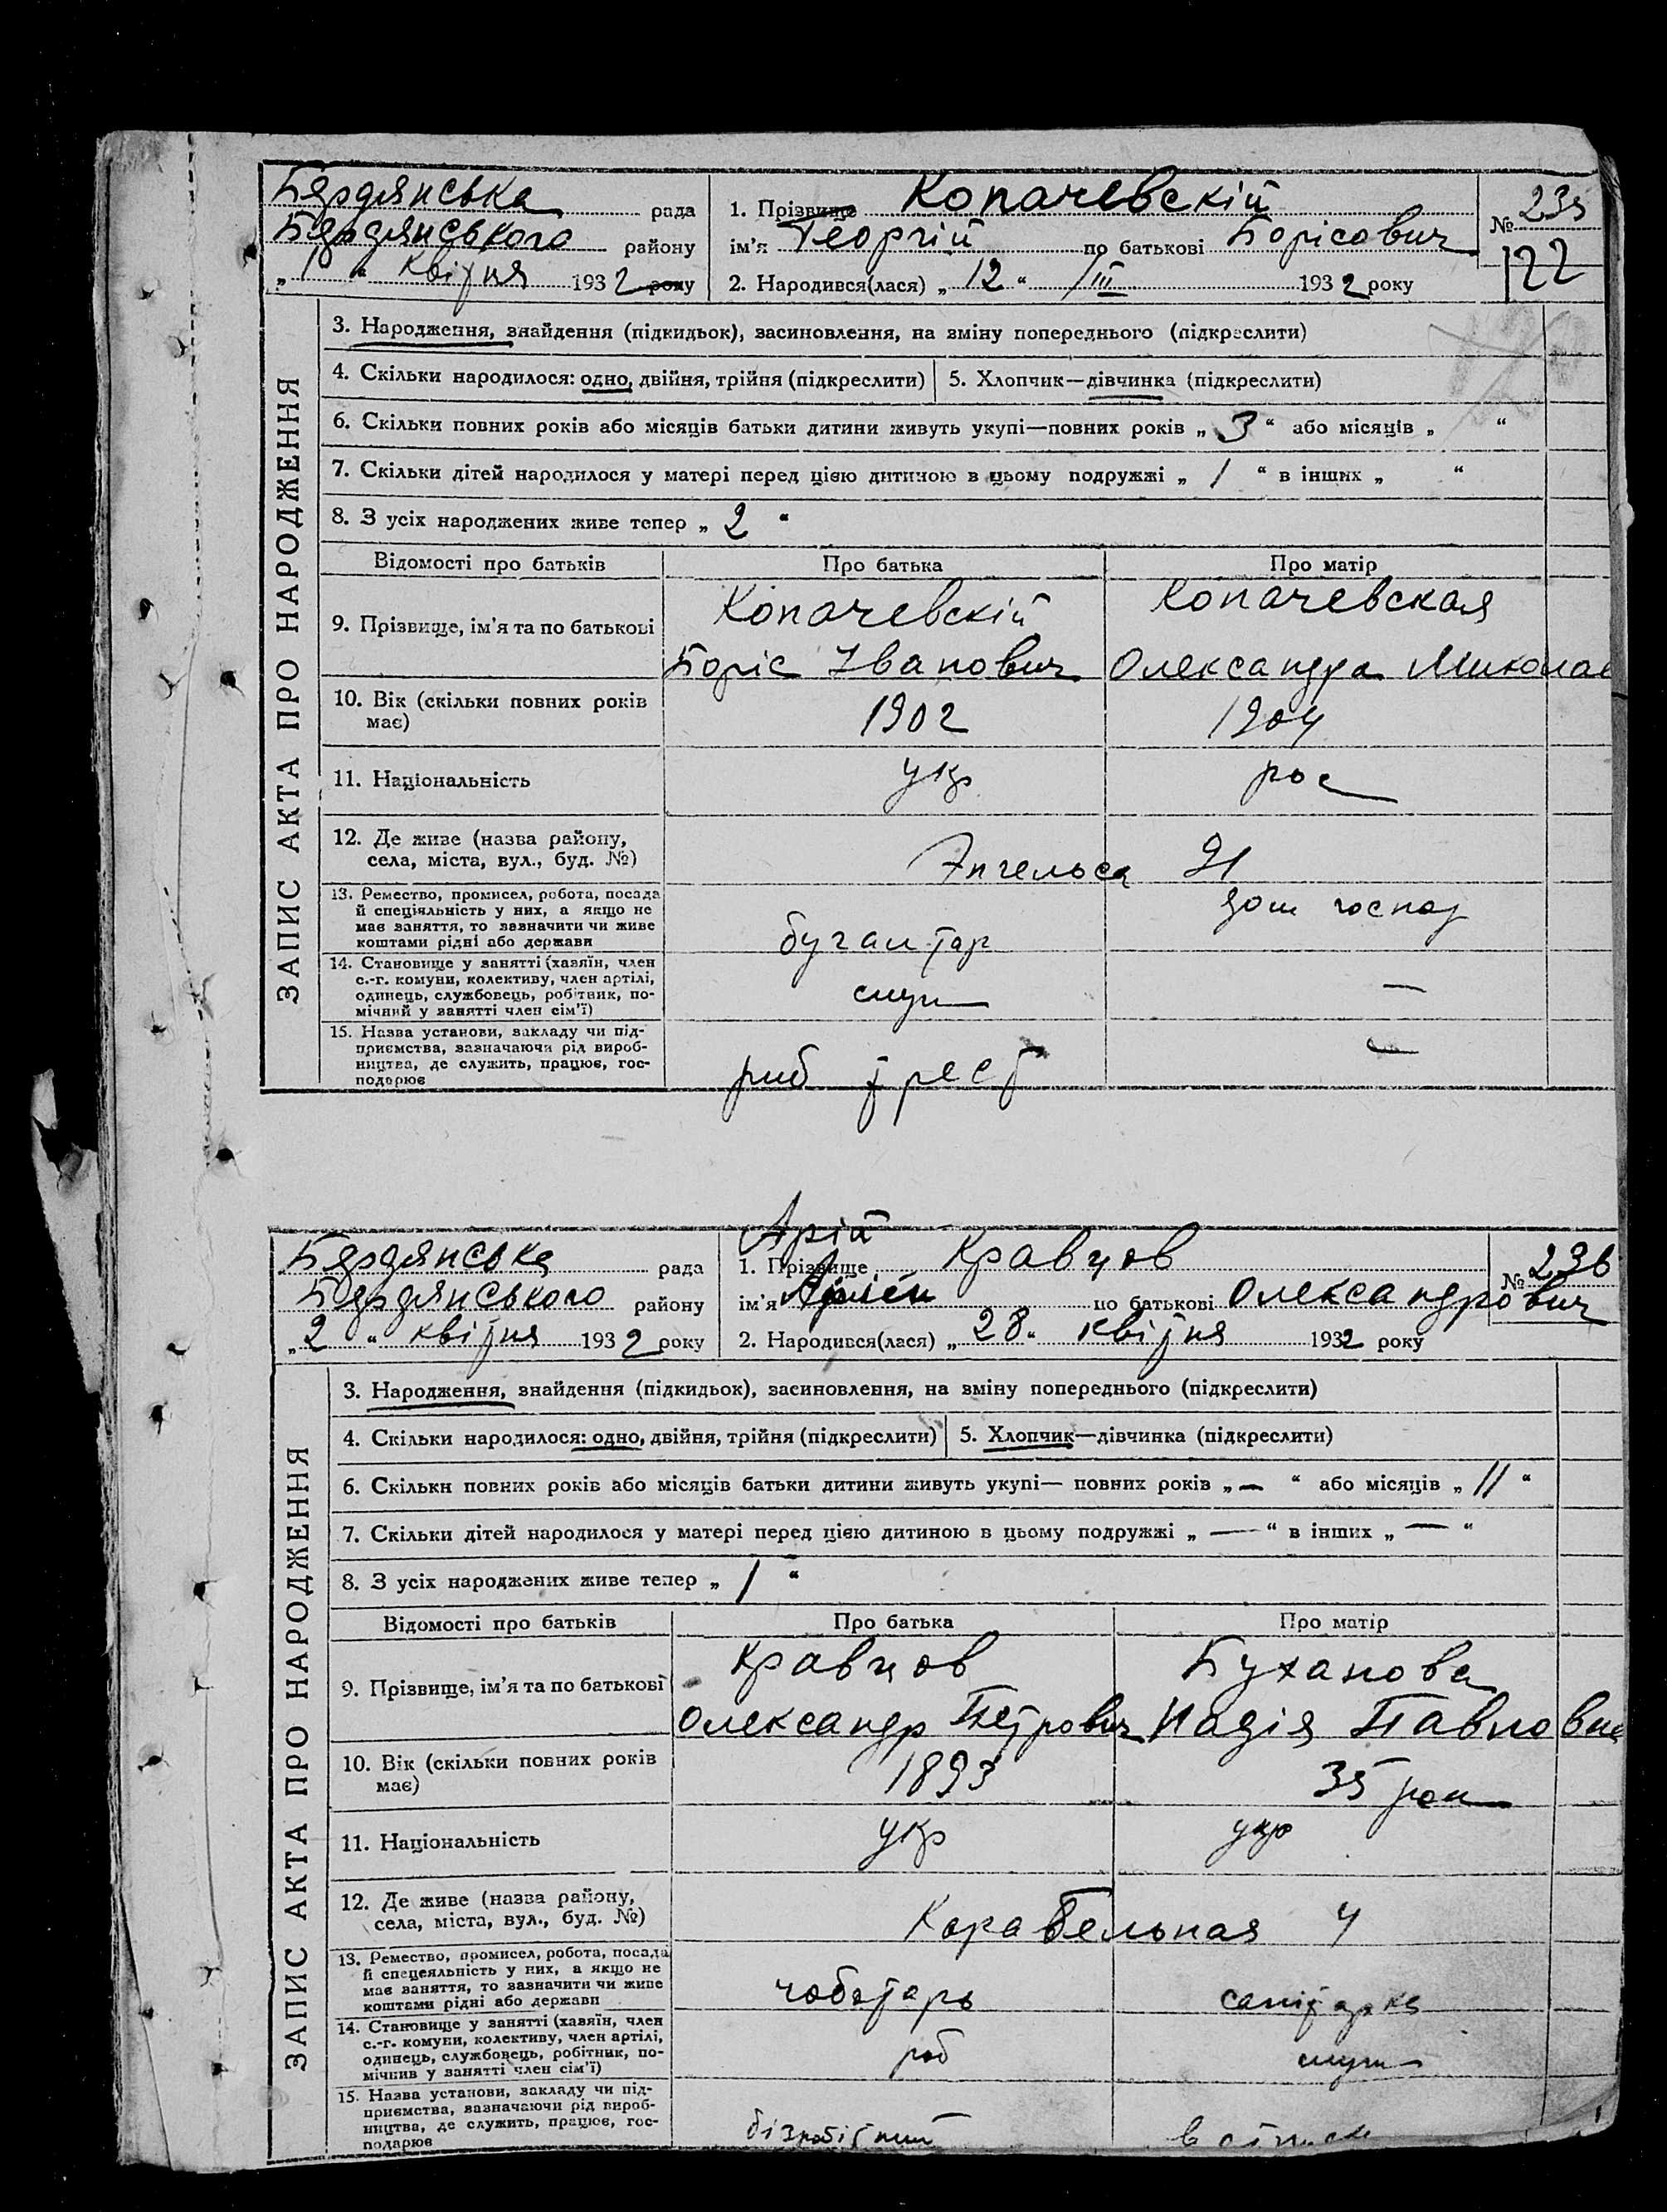 Бердянська рада
1. Прізвище Копачевскій
№ 235
Бердянського району
ім'я Георгій по батькові Борісович
122
„1“ квітня 1932 року
2. Народився(лася) „12“ /III 1932 року
ЗАПИС АКТА ПРО НАРОДЖЕННЯ
3. Народження, знайдення (підкидьок), засиновлення, на зміну попереднього (підкреслити)
4. Скільки народилося: одно, двійня, трійня (підкреслити)
5. Хлопчик—дівчинка (підкреслити)
6. Скільки повних років або місяців батьки дитини живуть укупі—повних років „3“ або місяців „ “
7. Скільки дітей народилося у матері перед цією дитиною в цьому подружжі „1“ в інших „ “
8. З усіх народжених живе тепер „2“
Відомості про батьків
Про батька
Про матір
9. Прізвище, ім'я та по батькові
Копачевскій
Боріс Іванович
Копачевская
Олександра Микола
10. Вік (скільки повних років
має)
1902
1904
11. Національність
укр
рос
12. Де живе (назва району,
села, міста, вул., буд. №)
Энгельса 21
13. Ремество, промисел, робота, посада
й спеціяльність у них, а якщо не
має заняття, то зазначити чи живе
коштами рідні або держави
бугалтар
дом господ
14. Становище у занятті (хазяїн, член
с.-г. комуни, колективу, член артілі,
одинець, службовець, робітник, по-
мічний у занятті член сім'ї)
служ
—
15. Назва установи, закладу чи під-
приємства, зазначаючи рід вироб-
ництва, де служить, працює, гос-
подарює
риб трест
—
Арій
Бердянська рада
1. Прізвище Кравцов
№ 236
Бердянського району
ім'я по батькові Олександрович
„2“ квітня 1932 року
2. Народився(лася) „28“ квітня 1932 року
ЗАПИС АКТА ПРО НАРОДЖЕННЯ
3. Народження, знайдення (підкидьок), засиновлення, на зміну попереднього (підкреслити)
4. Скільки народилося: одно, двійня, трійня (підкреслити)
5. Хлопчик—дівчинка (підкреслити)
6. Скільки повних років або місяців батьки дитини живуть укупі— повних років „—“ або місяців „11“
7. Скільки дітей народилося у матері перед цією дитиною в цьому подружжі „—“ в інших „—“
8. З усіх народжених живе тепер „1“
Відомості про батьків
Про батька
Про матір
9. Прізвище, ім'я та по батькові
Кравцов
Олександр Петрович
Буханова
Надія Павловна
10. Вік (скільки повних років
має)
1893
35 рок
11. Національність
укр
укр
12. Де живе (назва району,
села, міста, вул., буд. №)
Карабельная 4
13. Ремество, промисел, робота, посада
й спецеяльність у них, а якщо не
має заняття, то зазначити чи живе
коштами рідні або держави
чоботарь
санітарка
14. Становище у занятті (хазяїн, член
с.-г. комуни, колективу, член артілі,
одинець, службовець, робітник, по-
мічнив у занятті член сім'ї)
роб
служ
15. Назва установи, закладу чи під-
приємства, зазначаючи рід вироб-
ництва, де служить, працює, гос-
подарює
безробітний